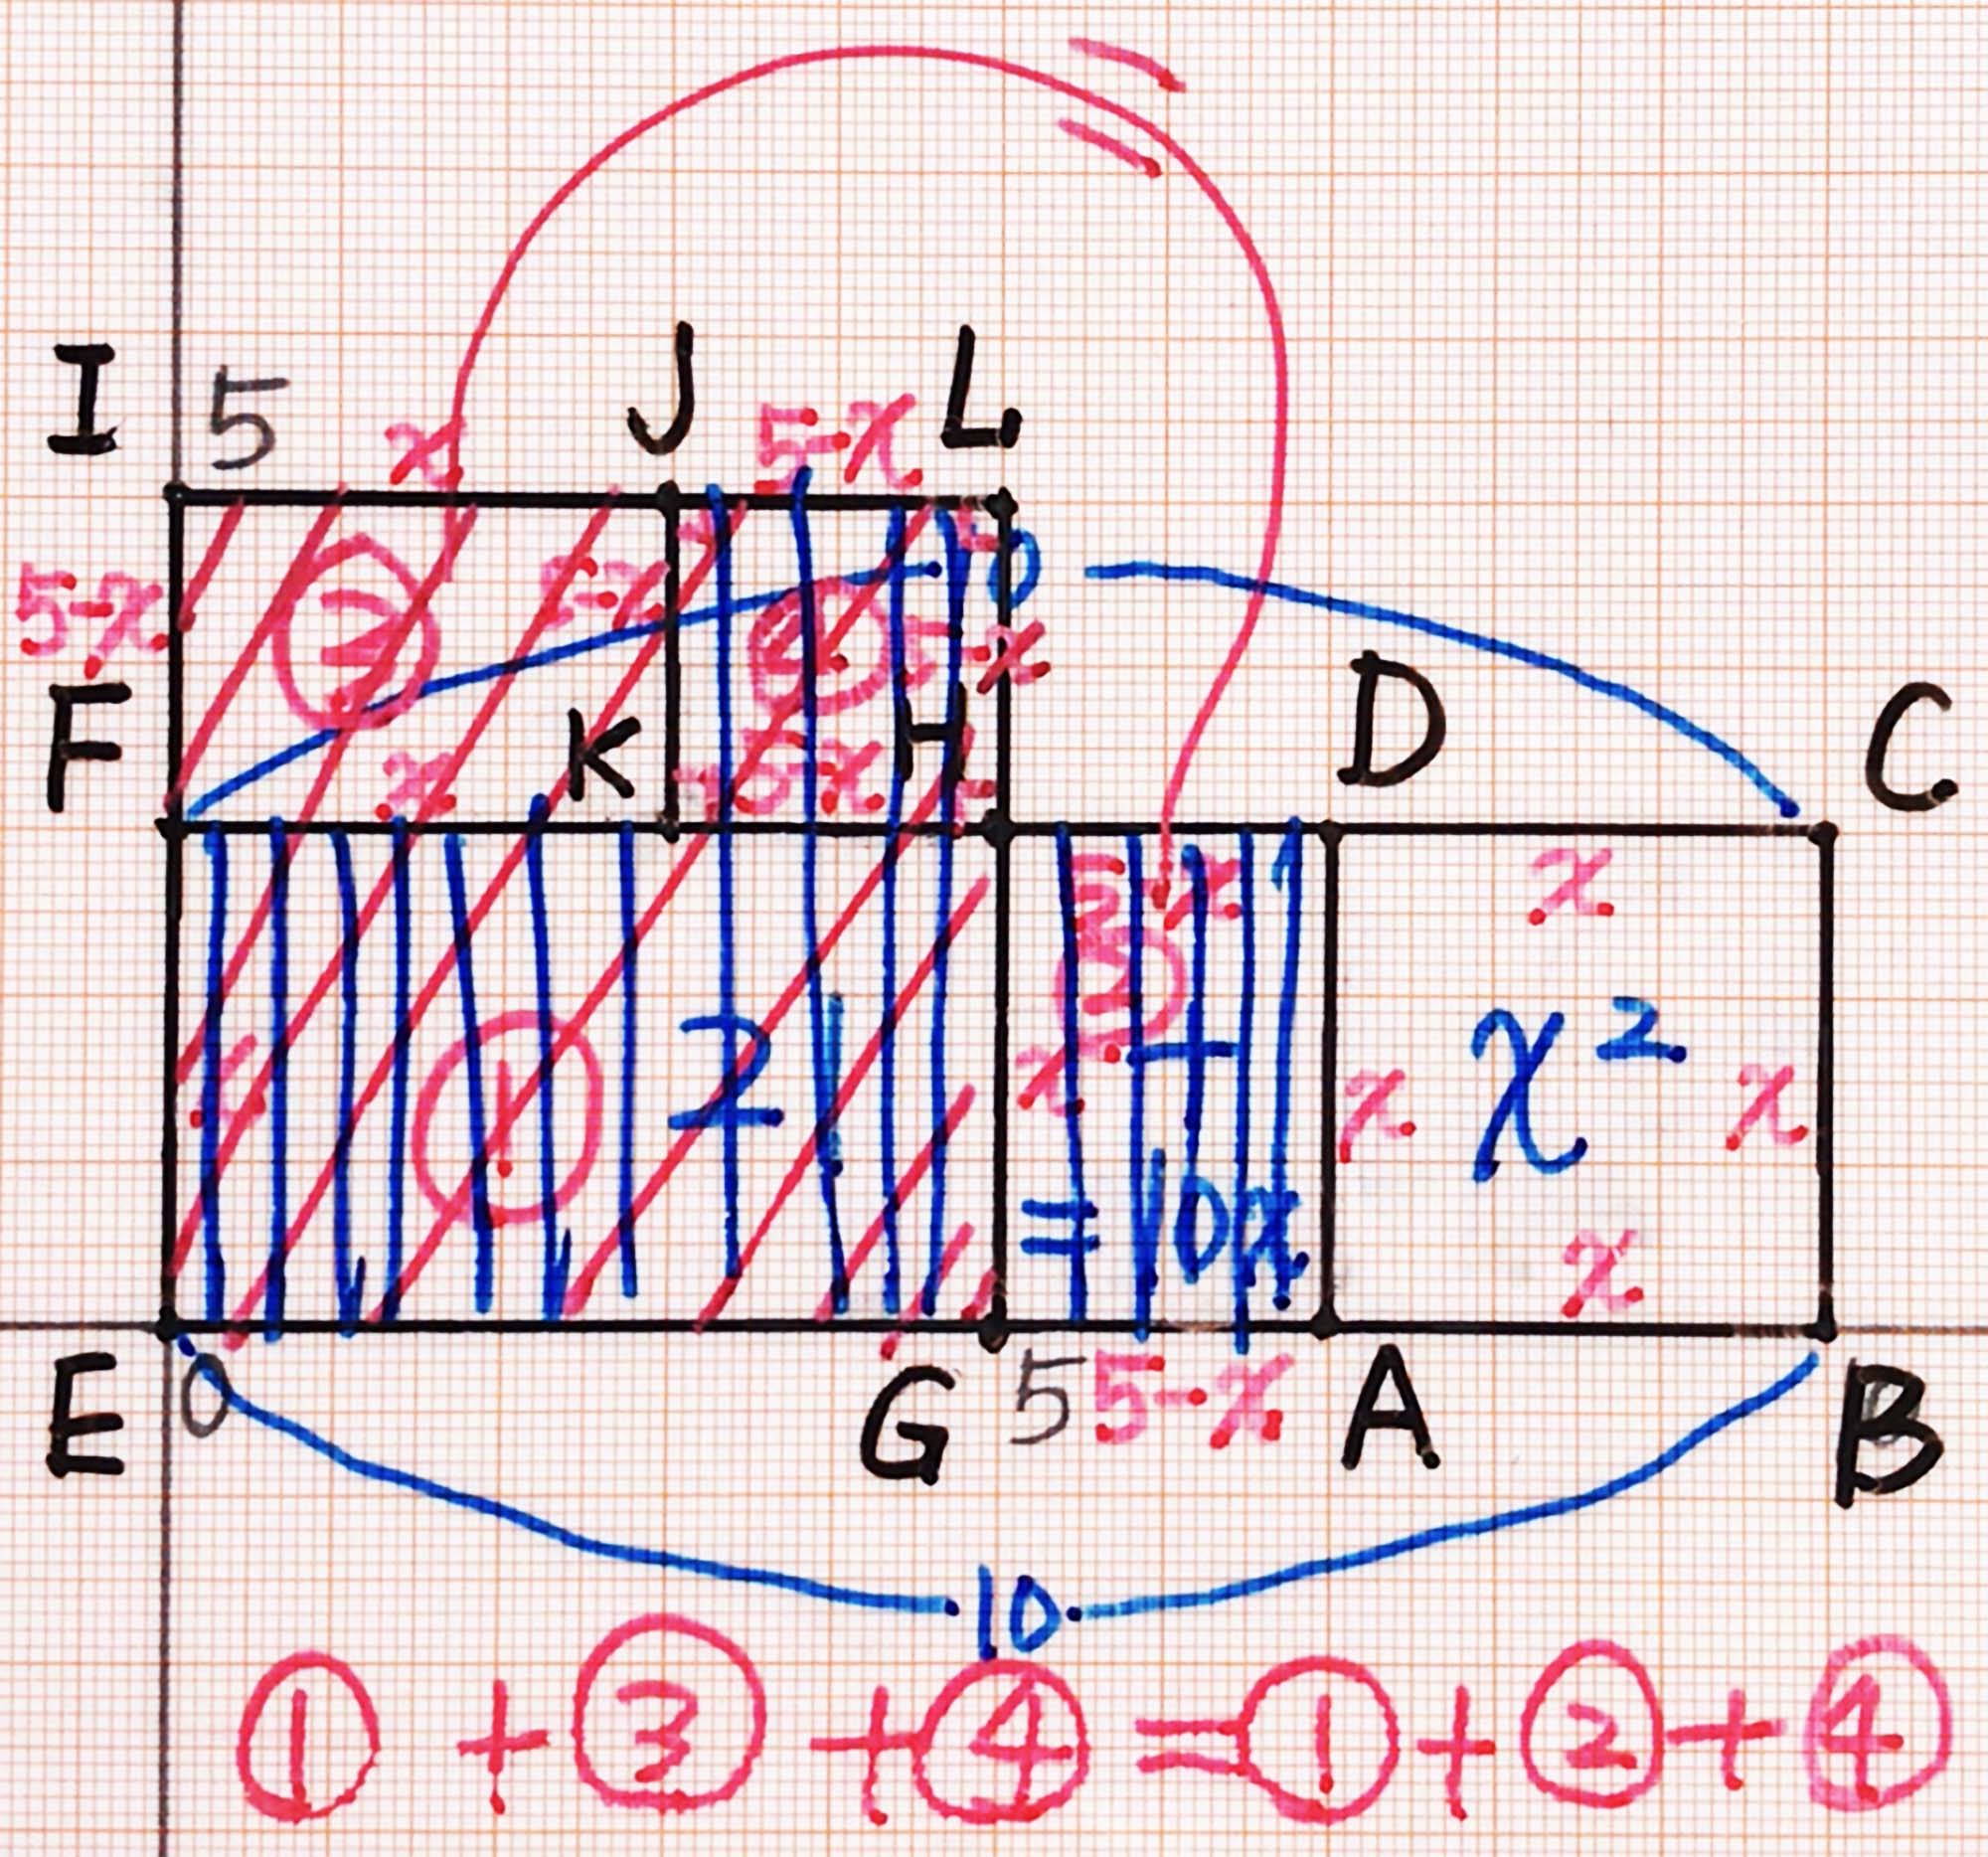 I 5 x J 5-x L
5-x ③ 5-x ④ 5-x 10
F x K 5-x H D C
5-x x
① 21 ② + x x x² x
= 10x x
E 0 G 5 5-x A B
10
① + ③ + ④ = ① + ② + ④